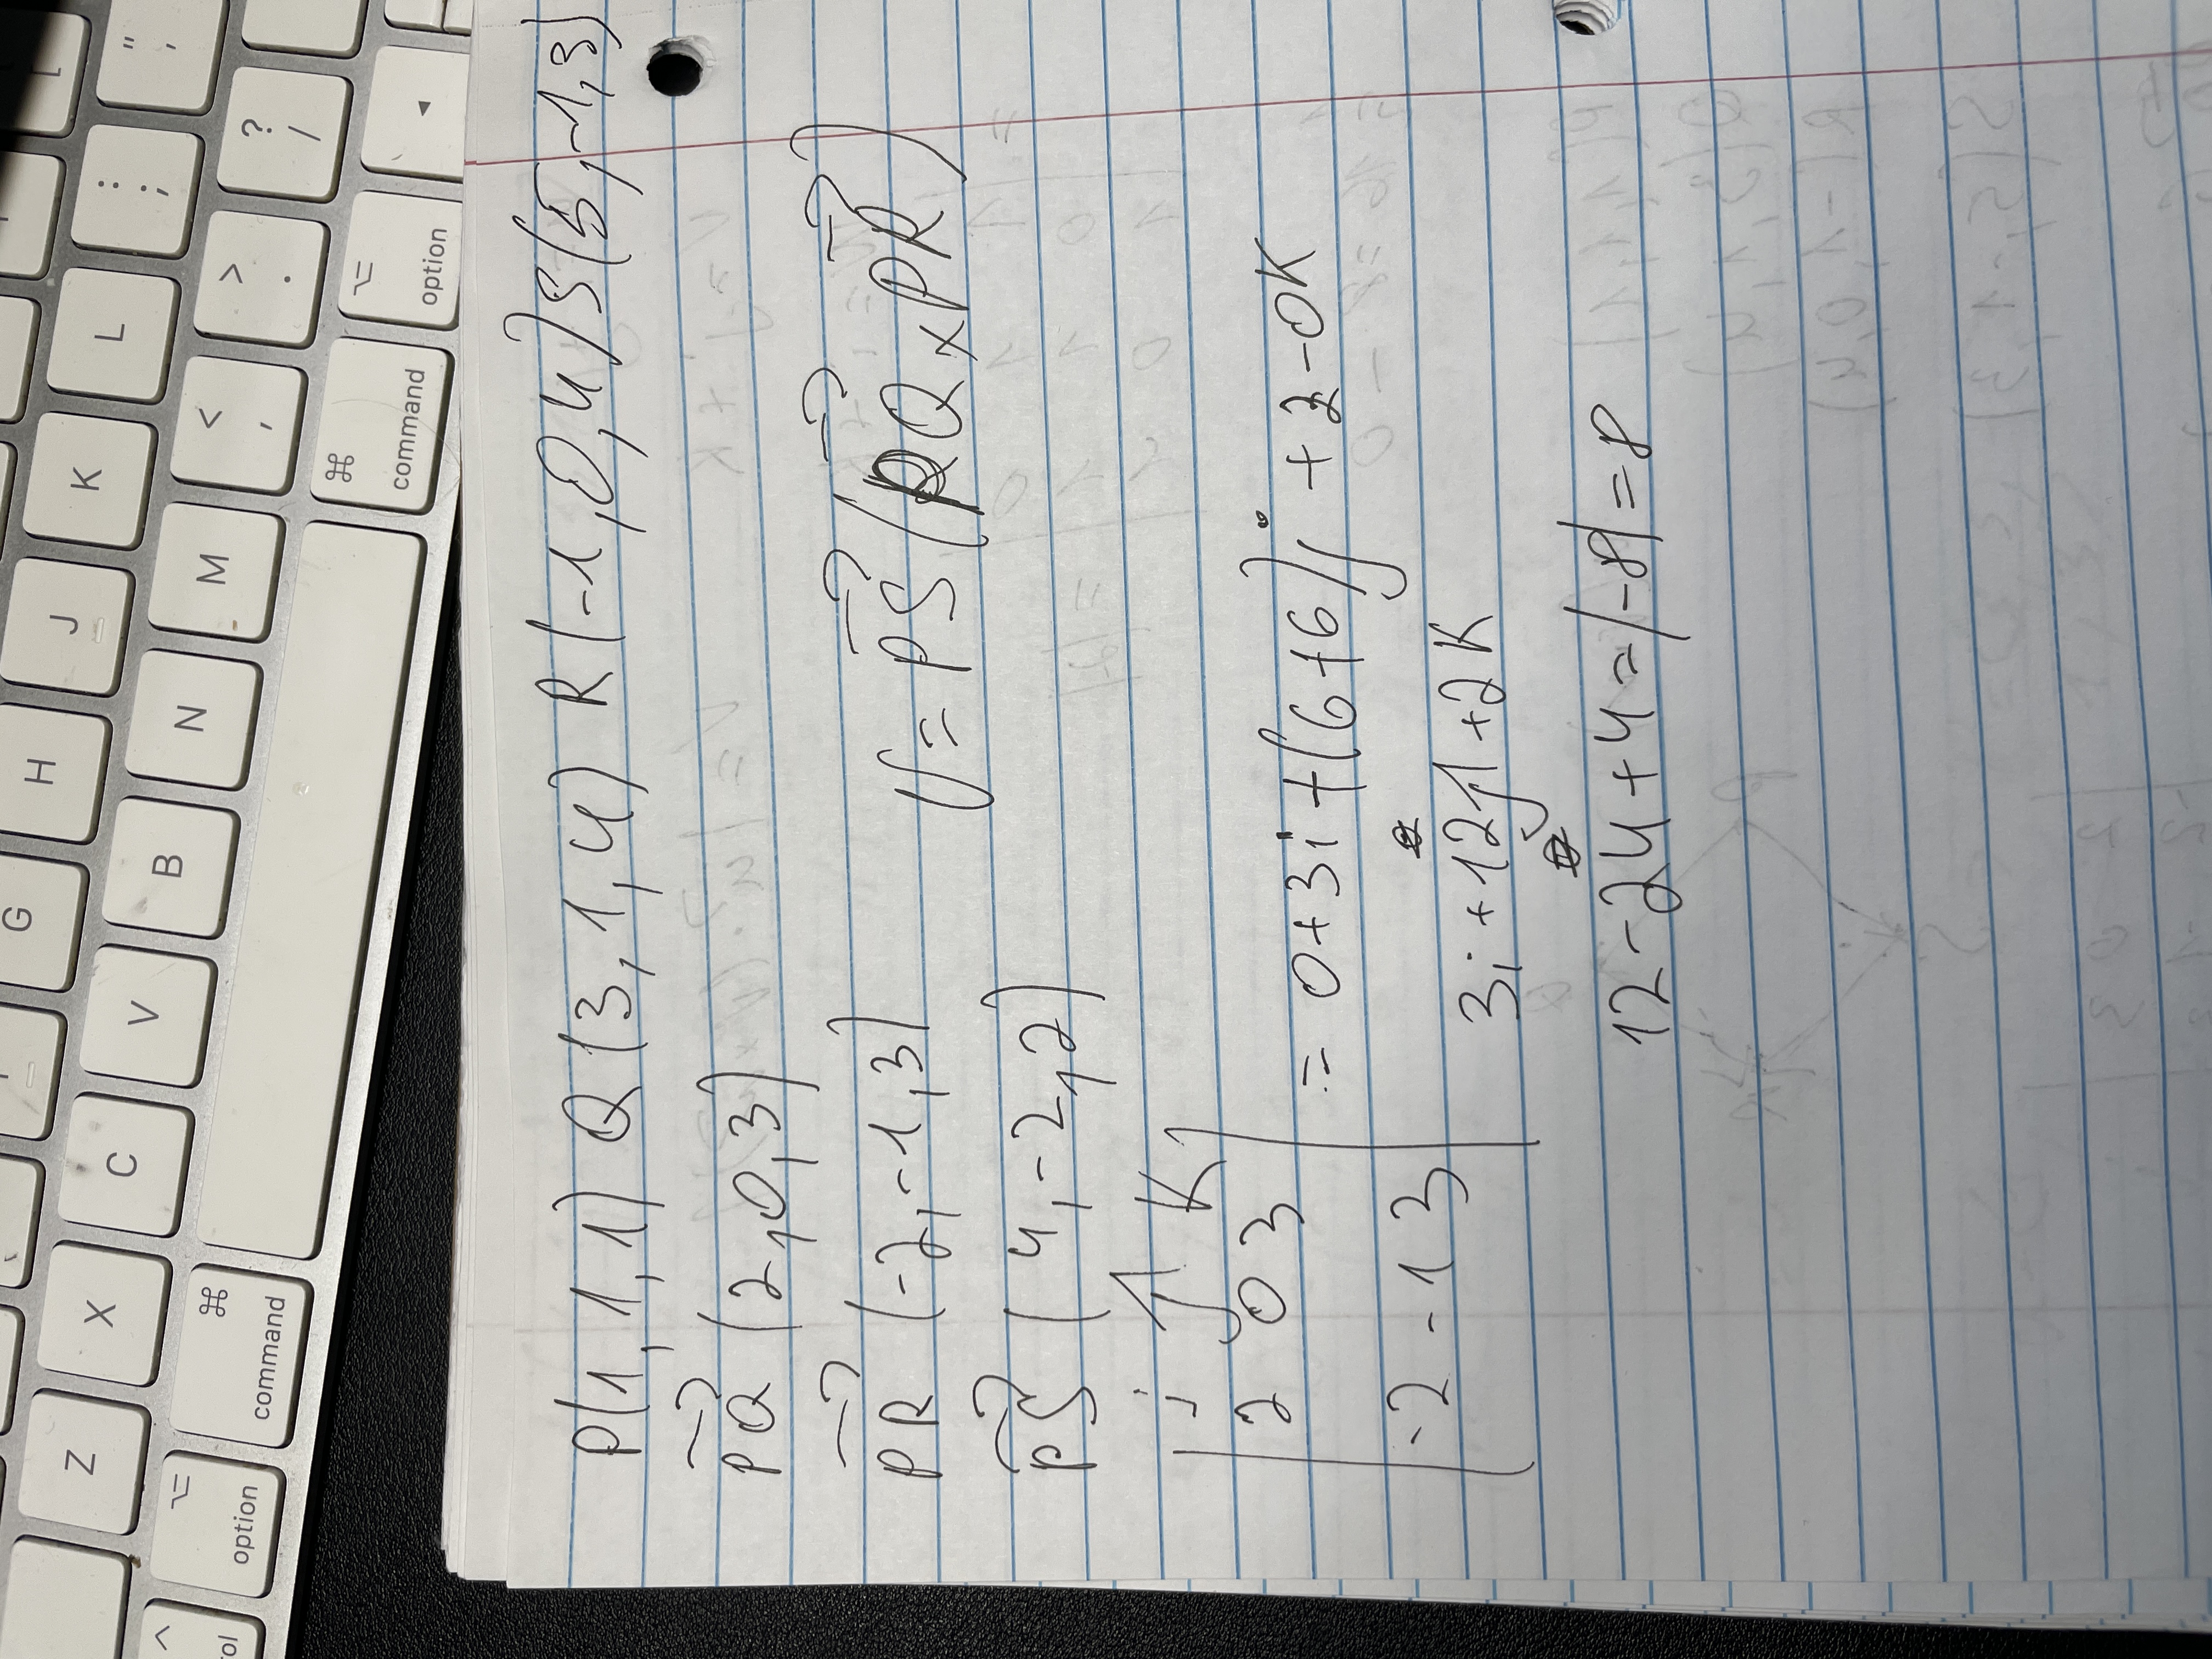 P(1,1,1) Q(3,1,4) R(-1,0,4) S(5,-1,3)
PQ (2,0,3)
PR (-2,-1,3)
PS (4,-2,2)
V = PS (PQ x PR)
i j K
2 0 3
-2 -1 3
= 0+3i+(6+6)j + 2-0K
3i +12j+2K
12-24+4=|-8|=8
" '
: ;
? /
L
> .
option
K
< ,
command
J
M
H
N
G
B
V
C
X
command
Z
option